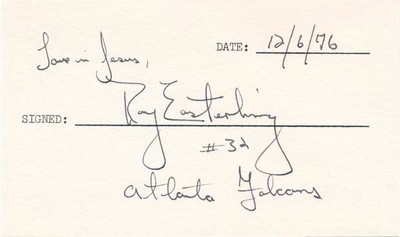 DATE: 12/6/76
Love in Jesus,
SIGNED: Ray Easterling
#32
Atlanta Falcons